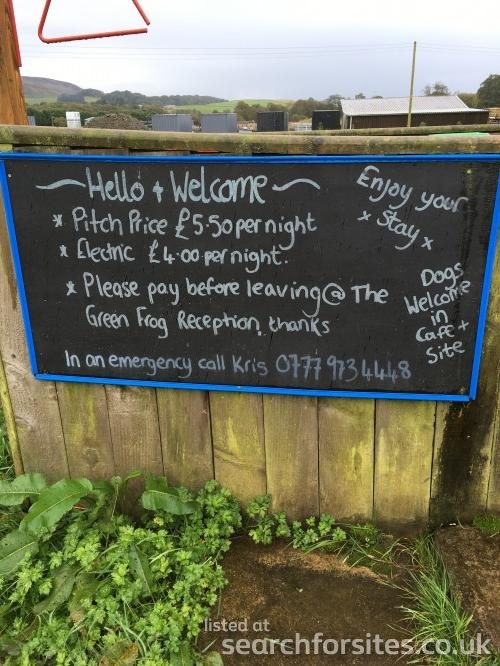 ~ Hello + Welcome ~
* Pitch Price £5.50 per night
* Electric £4.00 per night.
* Please pay before leaving @ The
Green Frog Reception, thanks
In an emergency call Kris 0777 973 4448
Enjoy your
x Stay x
Dogs
Welcome
in
Cafe +
Site
listed at
searchforsites.co.uk